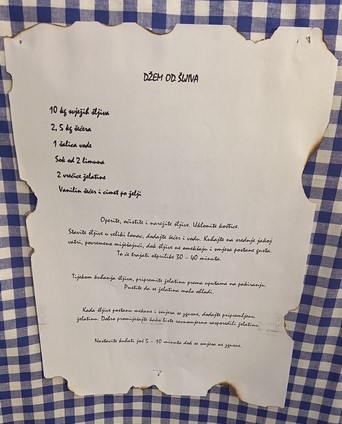 DŽEM OD ŠLJIVA
10 kg svježih šljiva
2, 5 kg šećera
1 šalica vode
Sok od 2 limuna
2 vrećice želatine
Vanilin šećer i cimet po želji
Operite, očistite i narežite šljive. Uklonite koštice.
Stavite šljive u veliki lonac, dodajte šećer i vodu. Kuhajte na srednje jakoj
vatri, povremeno miješajući, dok šljive ne omekšaju i smjesa postane gusta.
To će trajati otprilike 30 - 40 minuta.
Tijekom kuhanja šljiva, pripremite želatinu prema uputama na pakiranju.
Pustite da se želatina malo ohladi.
Kada šljive postanu mekane i smjesa se zgusne, dodajte pripremljenu
želatinu. Dobro promiješajte kako biste ravnomjerno rasporedili želatinu.
Nastavite kuhati još 5 - 10 minuta dok se smjesa ne zgusne.